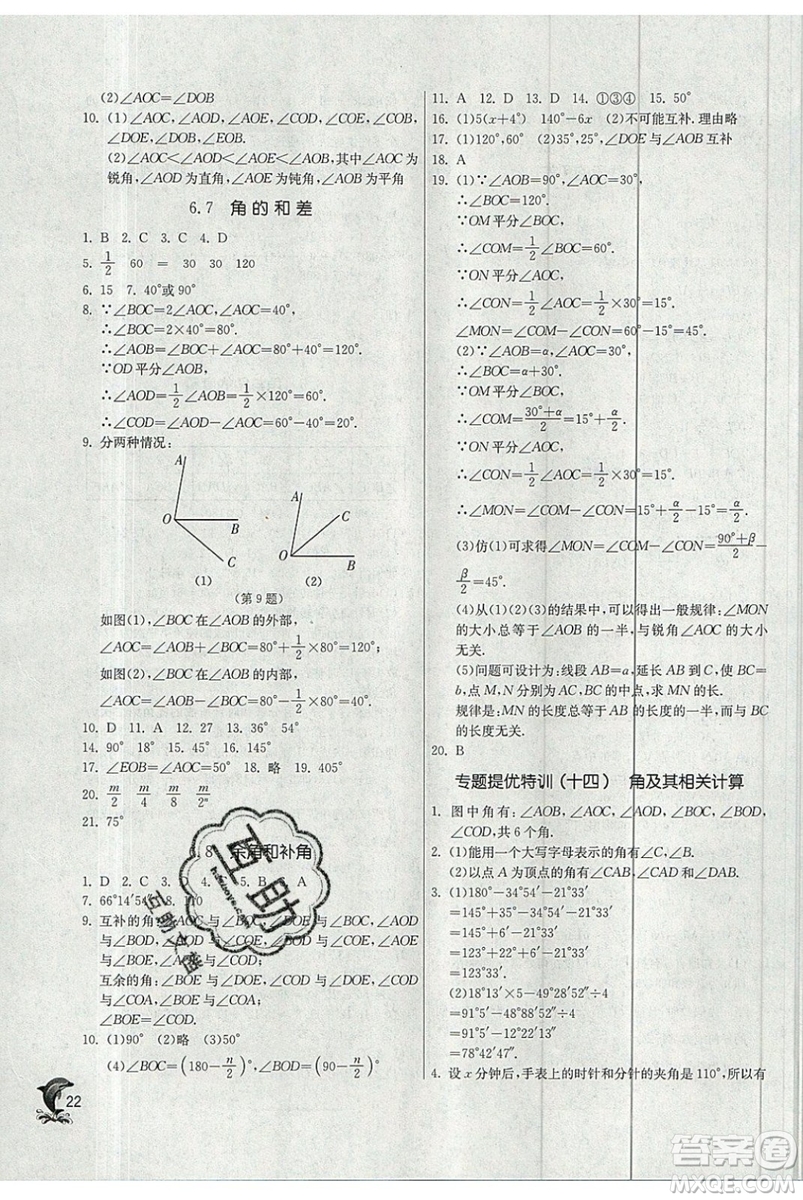 (2)∠AOC=∠DOB
10. (1)∠AOC,∠AOD,∠AOE,∠COD,∠COE,∠COB,
∠DOE,∠DOB,∠EOB.
(2)∠AOC<∠AOD<∠AOE<∠AOB,其中∠AOC 为
锐角,∠AOD为直角,∠AOE为钝角,∠AOB为平角
6.7 角的和差
1. B 2. C 3. C 4. D
5. 1/2 60 = 30 30 120
6. 15 7. 40°或 90°
8. ∵∠BOC=2∠AOC,∠AOC=40°,
∴∠BOC=2×40°=80°.
∴∠AOB=∠BOC+∠AOC=80°+40°=120°.
∵OD平分∠AOB,
∴∠AOD=1/2∠AOB=1/2×120°=60°.
∴∠COD=∠AOD-∠AOC=60°-40°=20°.
9. 分两种情况:
A
O
B
C
(1)
A
C
O
B
(2)
(第 9 题)
如图(1),∠BOC在∠AOB的外部,
∠AOC=∠AOB+∠BOC=80°+1/2×80°=120°;
如图(2),∠BOC在∠AOB的内部,
∠AOC=∠AOB-∠BOC=80°-1/2×80°=40°.
10. D 11. A 12. 27 13. 36° 54°
14. 90° 15. 180° 16. 145°
17. ∠EOB=∠AOC=50° 18. 略 19. 405°
20. m/2 m/2 m/2ⁿ
21. 75°
8 余角和补角
1. D 2. C 3. D 4. 5. B 6. A
7. 66°14′54″ 8. 110
9. 互补的角:∠AOC与∠BOC,∠AOD与∠BOD,∠AOD
与∠BOE,∠AOD与∠COD,∠AOE与∠BOE,∠AOE
与∠BOD,∠AOE与∠COD;
互余的角:∠BOE与∠DOE,∠BOE与∠COA,∠COD
与∠COA,∠BOD与∠COA,∠COD与∠DOE;
∠BOE=∠COD.
10. (1)90° (2)略 (3)50°
(4)∠BOC=(180-n/2)°,∠BOD=(90-n/2)°
22
11. A 12. D 13. D 14. ①③④ 15. 50°
16. (1)5(x+4°) 140°-6x (2)不可能互补.理由略
17. (1)120°,60° (2)35°,25°,∠DOE与∠AOB互补
18. A
19. (1)∵∠AOB=90°,∠AOC=30°,
∴∠BOC=120°.
∵OM平分∠BOC,
∴∠COM=1/2∠BOC=60°.
∵ON平分∠AOC,
∴∠CON=1/2∠AOC=1/2×30°=15°.
∠MON=∠COM-∠CON=60°-15°=45°.
(2)∵∠AOB=α,∠AOC=30°,
∴∠BOC=α+30°.
∵OM平分∠BOC,
∴∠COM=(30°+α)/2.
∵ON平分∠AOC,
∴∠CON=1/2∠AOC=1/2×30°=15°.
∴∠MON=∠COM-∠CON=15°+α/2-15°=α/2.
(3)仿(1)可求得∠MON=∠COM-∠CON=(90°+β)/2-
β/2=45°.
(4)从(1)(2)(3)的结果中,可以得出一般规律:∠MON
的大小总等于∠AOB的一半,与锐角∠AOC的大小
无关.
(5)问题可设计为:线段 AB=a,延长 AB 到 C,使 BC=
b,点 M,N 分别为 AC,BC 的中点,求 MN 的长.
规律是:MN的长度总等于AB的长度的一半,而与BC
的长度无关.
20. B
专题提优特训(十四) 角及其相关计算
1. 图中角有:∠AOB,∠AOC,∠AOD,∠BOC,∠BOD,
∠COD,共 6 个角.
2. (1)能用一个大写字母表示的角有∠C,∠B.
(2)以点 A 为顶点的角有∠CAB,∠CAD,∠DAB.
3. (1)180°-34°54′-21°33′
=145°+35°-34°54′-21°33′
=145°+6′-21°33′
=123°+22°+6′-21°33′
=123°33′.
(2)18°13′×5-49°28′52″÷4
=91°5′-48°88′52″÷4
=91°5′-12°22′13″
=90°64′60″-12°22′13″
=78°42′47″.
4. 设 x 分钟后,手表上的时针和分针的夹角是 110°,所以有
互助
互助文档
答案圈
MXQE.COM